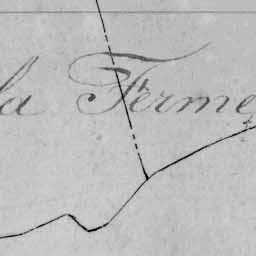 la Ferme